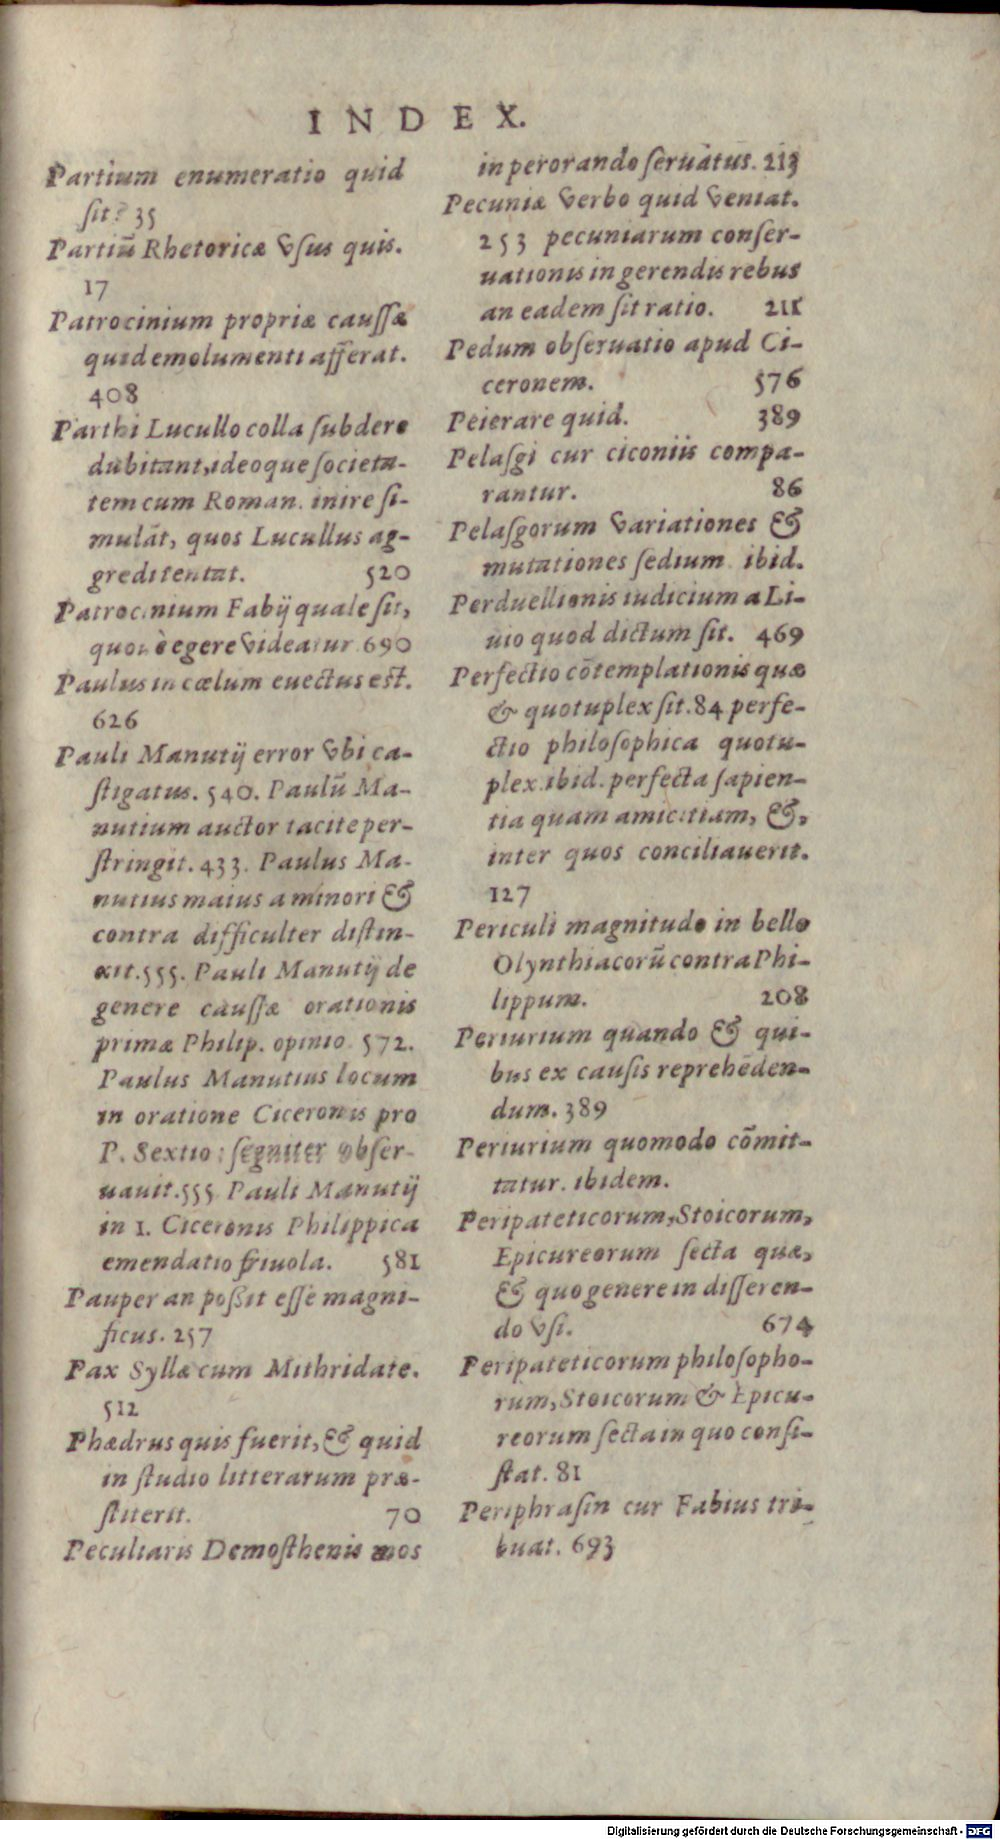 INDEX.
Partium enumeratio quid
ſit? 35
Partiū Rhetoricæ vſus quis.
17
Patrocinium propriæ cauſſæ
quid emolumenti afferat.
408
Parthi Lucullo colla ſubdere
dubitant, ideoque ſocieta-
tem cum Roman. inire ſi-
mulāt, quos Lucullus ag-
gredi tentat. 520
Patrocinium Fabij quale ſit,
quo egere videatur 690
Paulus in cælum euectus eſt.
626
Pauli Manutij error vbi ca-
ſtigatus. 540. Paulū Ma-
nutium auctor tacite per-
ſtringit. 433. Paulus Ma-
nutius maius a minori &
contra difficulter diſtin-
xit. 555. Pauli Manutij de
genere cauſſæ orationis
primæ Philip. opinio. 572.
Paulus Manutius locum
in oratione Ciceronis pro
P. Sextio: ſegniter obſer-
uauit. 555 Pauli Manutij
in 1. Ciceronis Philippica
emendatio friuola. 581
Pauper an poſſit eſſe magni-
ficus. 257
Pax Syllæ cum Mithridate.
512
Phædrus quis fuerit, & quid
in ſtudio litterarum præ-
ſtiterit. 70
Peculiaris Demoſthenis mos
in perorando ſeruatus. 213
Pecuniæ verbo quid veniat.
253 pecuniarum conſer-
uationis in gerendis rebus
an eadem ſit ratio. 211
Pedum obſeruatio apud Ci-
ceronem. 576
Peierare quid. 389
Pelaſgi cur ciconiis compa-
rantur. 86
Pelaſgorum variationes &
mutationes ſedium ibid.
Perduellionis iudicium a Li-
uio quod dictum ſit. 469
Perfectio cōtemplationis quæ
& quotuplex ſit. 84 perfe-
ctio philoſophica quotu-
plex. ibid. perfecta ſapien-
tia quam amicitiam, &,
inter quos conciliauerit.
127
Periculi magnitudo in bello
Olynthiacorū contra Phi-
lippum. 208
Periurium quando & qui-
bus ex cauſis reprehēden-
dum. 389
Periurium quomodo cōmit-
tatur. ibidem.
Peripateticorum, Stoicorum,
Epicureorum ſecta quæ,
& quo genere in diſſeren-
do vſi. 674
Peripateticorum philoſopho-
rum, Stoicorum & Epicu-
reorum ſecta in quo conſi-
ſtat. 81
Periphraſin cur Fabius tri-
buat. 693
Digitalisierung gefördert durch die Deutsche Forschungsgemeinschaft - DFG